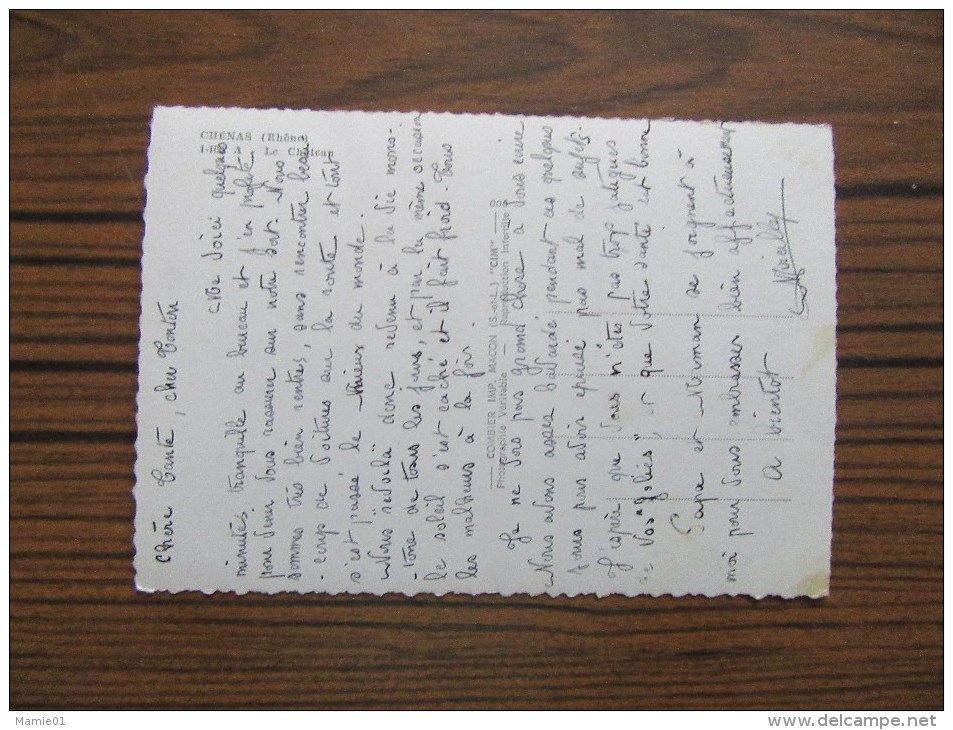 CHENAS (Rhône)
Le Château
Chère Tante, cher Tonton
Me voici quelques
minutes tranquille au bureau et j'en profite
pour venir vous rassurer sur notre sort. Nous
sommes très bien rentrés, sans rencontrer beau
-coup de voitures sur la route et tout
s'est passé le mieux du monde.
Nous revoilà donc revenu à la vie mono-
-tone de tous les jours, et par la même occasion
le soleil s'est caché et il fait froid. Tous
les malheurs à la fois.
COMBIER IMP. MACON (S.-et-L.) "CIM"
Photographie Véritable — Reproduction Interdite
Je ne vois pas grand chose à vous écrire
Nous avons assez bavardé pendant ces quelques
jours pour avoir épuisé pas mal de sujets.
J'espère que vous n'êtes pas trop fatigués
de vos et que votre santé est bonne
Papa et Maman se joignent à
moi pour vous embrasser bien affectueusement
A bientôt
Mamie01
delcampe.net